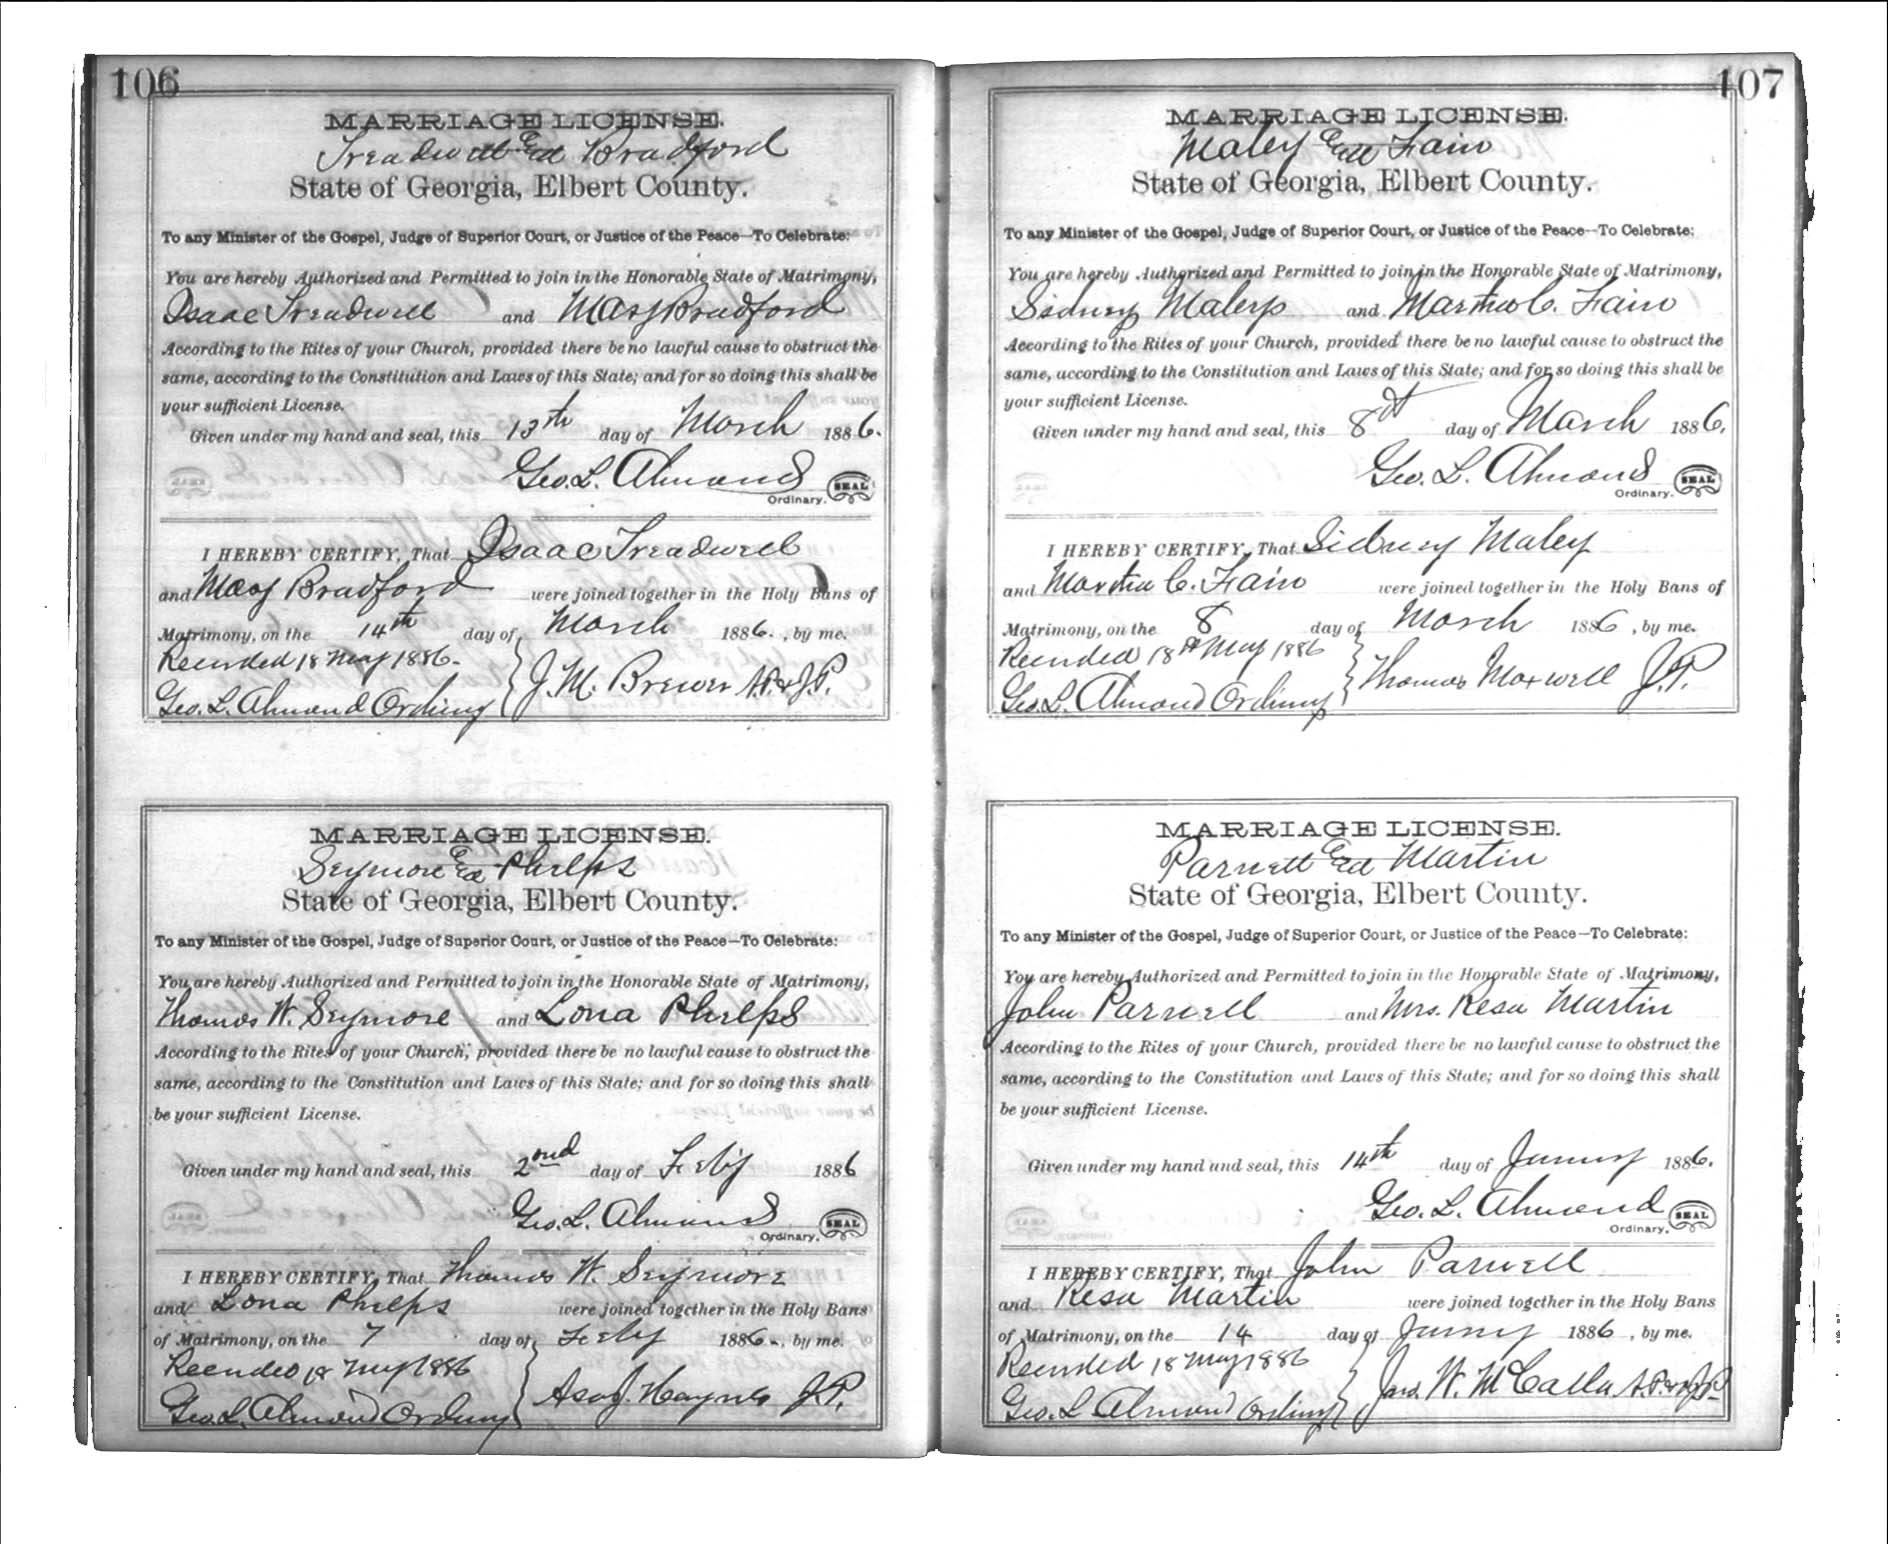 106
MARRIAGE LICENSE.
Treadwell Bradford
State of Georgia, Elbert County.
To any Minister of the Gospel, Judge of Superior Court, or Justice of the Peace—To Celebrate:
You are hereby Authorized and Permitted to join in the Honorable State of Matrimony,
Isaac Treadwell and Mary Bradford
According to the Rites of your Church, provided there be no lawful cause to obstruct the
same, according to the Constitution and Laws of this State; and for so doing this shall be
your sufficient License.
Given under my hand and seal, this 13th day of March 1886.
Geo. L. Almond SEAL
Ordinary.
I HEREBY CERTIFY, That Isaac Treadwell
and Mary Bradford were joined together in the Holy Bans of
Matrimony, on the 14th day of March 1886. , by me.
Recorded 18 May 1886.
Geo. L. Almond Ordinary J. M. Brewer N.P. & J.P.
MARRIAGE LICENSE.
Seymore Phelps
State of Georgia, Elbert County.
To any Minister of the Gospel, Judge of Superior Court, or Justice of the Peace—To Celebrate:
You are hereby Authorized and Permitted to join in the Honorable State of Matrimony,
Thomas W. Seymore and Lona Phelps
According to the Rites of your Church, provided there be no lawful cause to obstruct the
same, according to the Constitution and Laws of this State; and for so doing this shall
be your sufficient License.
Given under my hand and seal, this 2nd day of Feby 1886
Geo. L. Almond SEAL
Ordinary.
I HEREBY CERTIFY, That Thomas W. Seymore
and Lona Phelps were joined together in the Holy Bans
of Matrimony, on the 7 day of Feby 1886. , by me.
Recorded 18 May 1886
Geo. L. Almond Ordinary Asa J. Haynes J.P.
107
MARRIAGE LICENSE.
Maley Fain
State of Georgia, Elbert County.
To any Minister of the Gospel, Judge of Superior Court, or Justice of the Peace--To Celebrate:
You are hereby Authorized and Permitted to join in the Honorable State of Matrimony,
Sidney Maley and Martha C. Fain
According to the Rites of your Church, provided there be no lawful cause to obstruct the
same, according to the Constitution and Laws of this State; and for so doing this shall be
your sufficient License.
Given under my hand and seal, this 8th day of March 1886,
Geo. L. Almond SEAL
Ordinary.
I HEREBY CERTIFY, That Sidney Maley
and Martha C. Fain were joined together in the Holy Bans of
Matrimony, on the 8 day of March 1886 , by me.
Recorded 18th May 1886
Geo. L. Almond Ordinary Thomas Maxwell J.P.
MARRIAGE LICENSE.
Parnell Martin
State of Georgia, Elbert County.
To any Minister of the Gospel, Judge of Superior Court, or Justice of the Peace—To Celebrate:
You are hereby Authorized and Permitted to join in the Honorable State of Matrimony,
John Parnell and Mrs. Resa Martin
According to the Rites of your Church, provided there be no lawful cause to obstruct the
same, according to the Constitution and Laws of this State; and for so doing this shall
be your sufficient License.
Given under my hand and seal, this 14th day of 1886.
Geo. L. Almond SEAL
Ordinary.
I HEREBY CERTIFY, That John Parnell
and Resa Martin were joined together in the Holy Bans
of Matrimony, on the 14 day of 1886 , by me.
Recorded 18 May 1886
Geo. L. Almond Ordinary Jas. W. McCalla N.P. & J.P.